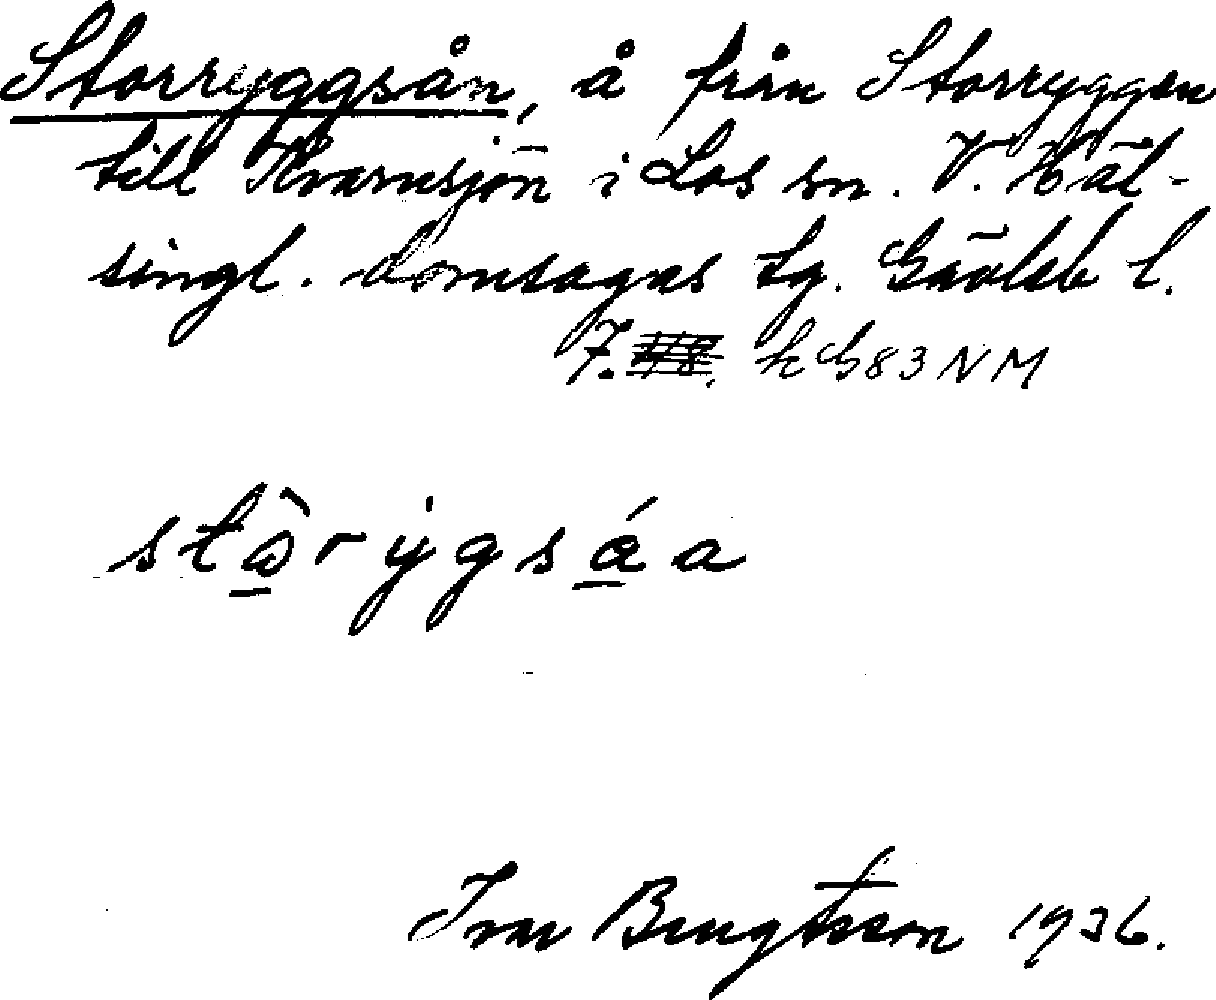 Storryggsån, å från Storryggen
till Kvarnsjön i Los sn. V. Häl-
singl. domsagas tg. Gävleb l.
7. k G83 NM
Ivar Bengtsson 1936.